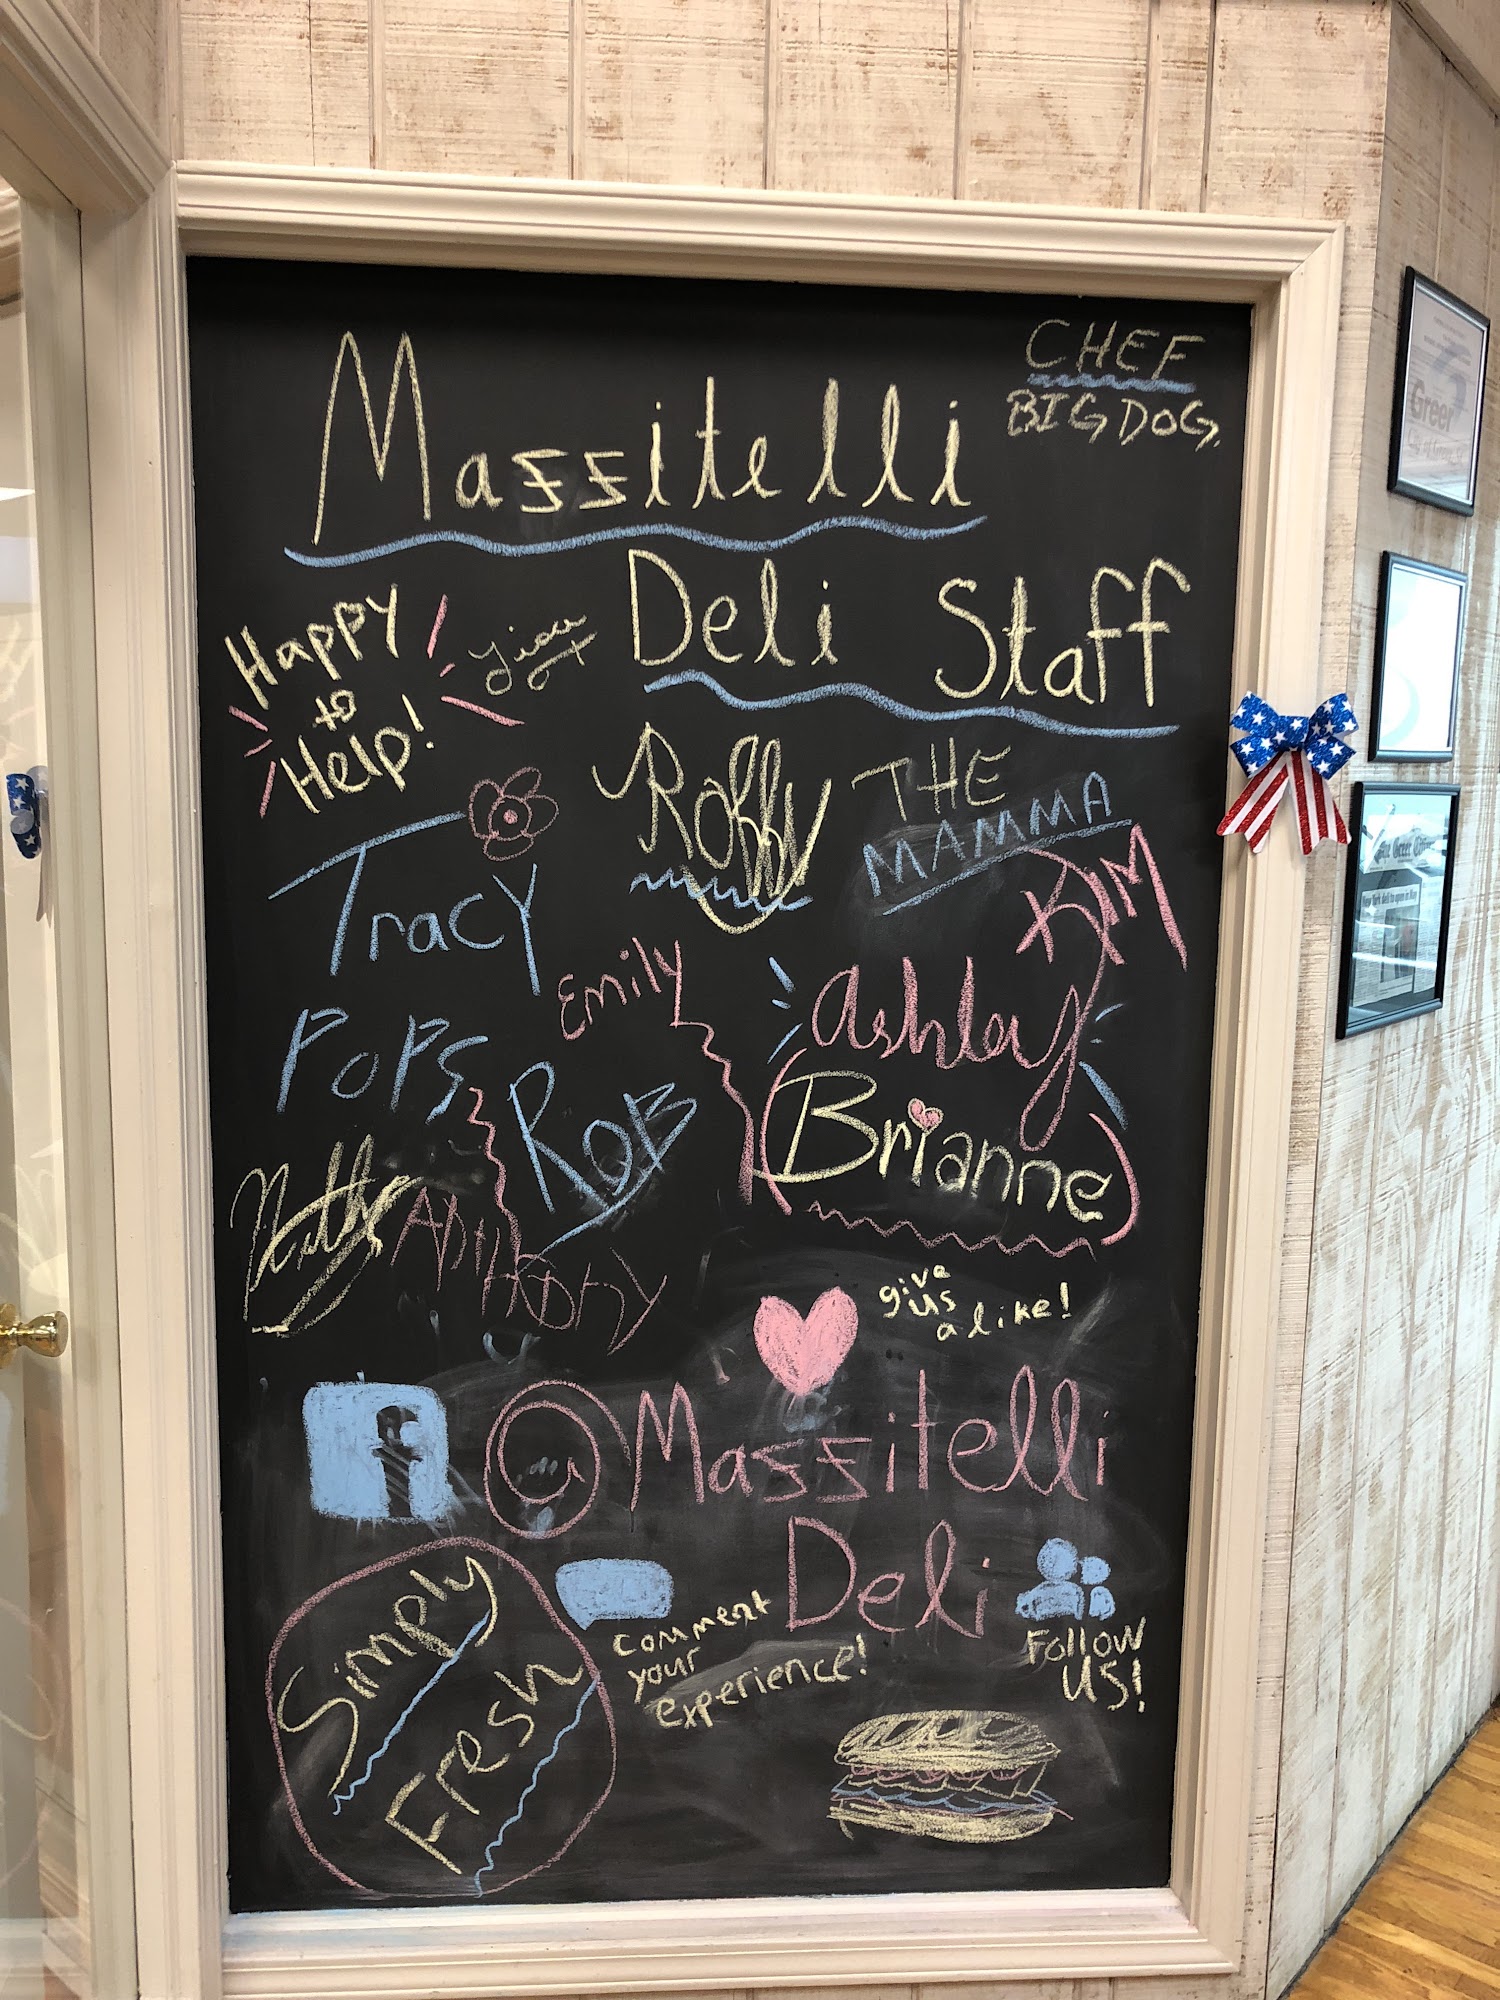 CHEF
BIG DOG
Mazzitelli
Deli Staff
Happy
to
Help!
Robby
THE
MAMMA
KIM
Tracy
Emily
Ashley
POPS
ROB
Brianne
Anthony
give
us
a like!
f @Mazzitelli
Deli
comment
your
experience!
Follow
US!
Simply
Fresh
Greer